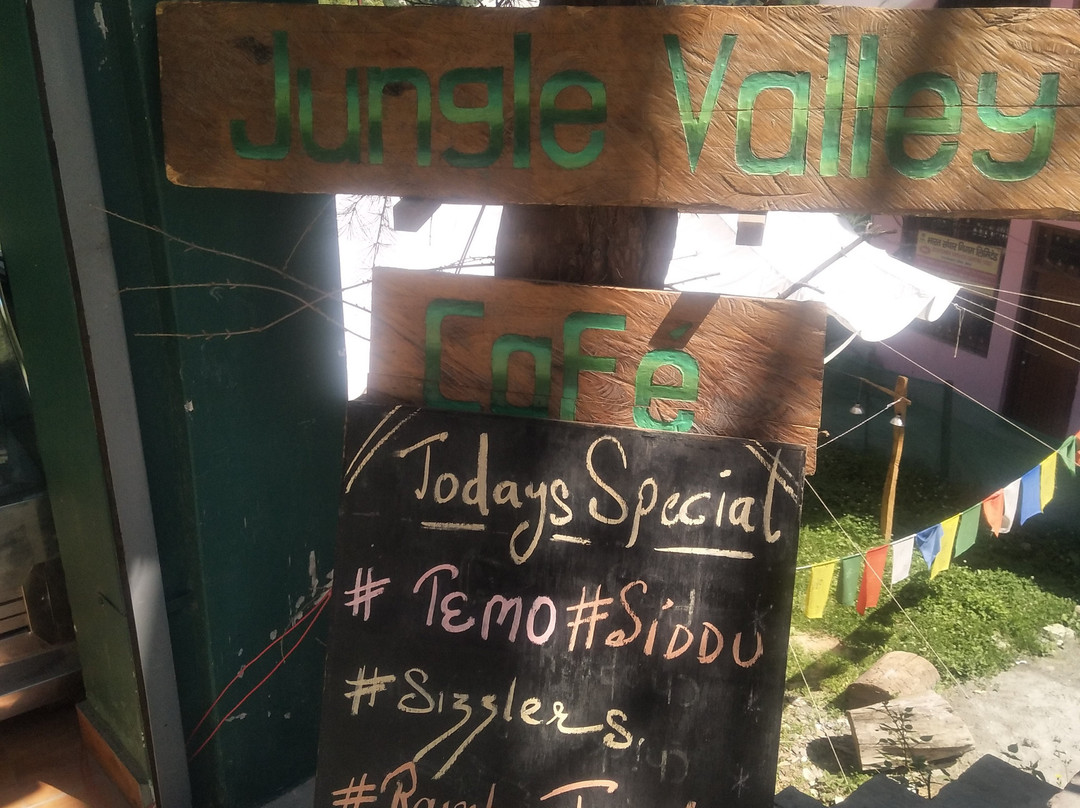 Jungle Valley
Café
Todays Special
# TEMO #SIDDU
#Sizzlers.
भारत संचार निगम लिमिटेड